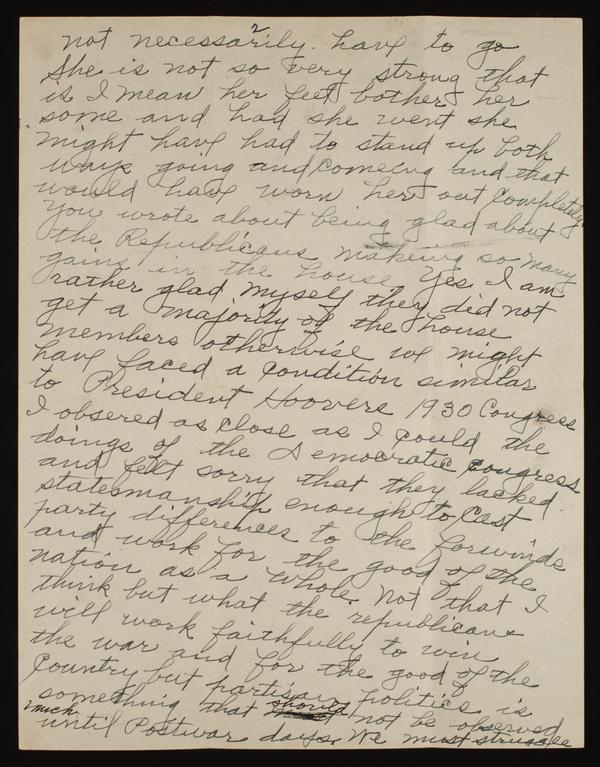 2
not necessarily. have to go
She is not so very strong that
is I mean her feet bother her
some and had she went she
might have had to stand up both
ways going and comeing and that
would have worn her out completely
You wrote about being glad about
the Republicans makeing so many
gains in the house. Yes I am
rather glad myself they did not
get a majority of the house
members otherwise we might
have faced a condition similar
to President Hoovers 1930 Congress
I obsered as close as I could the
doings of the Democratic Congress
and felt sorry that they lacked
statesmanship enough to cast
party differences to the forwinds
and work for the good of the
nation as a whole. Not that I
think but what the republicans
will work faithfully to win
the war and for the good of the
Country but partisan politics is
something that should not be observed
much until Postwar days. We must struggle